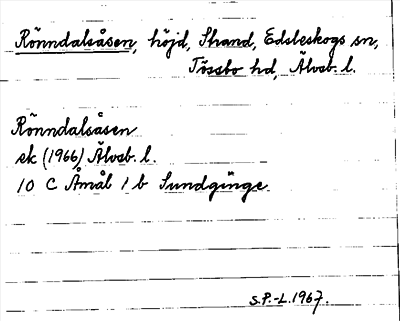 Rönndalsåsen, höjd, Strand, Edsleskogs sn,
Tössbo hd, Älvsb. l.
Rönndalsåsen
ek (1966) Älvsb. l.
10 C Åmål 1 b Sundgünge
S.P.-L. 1967.